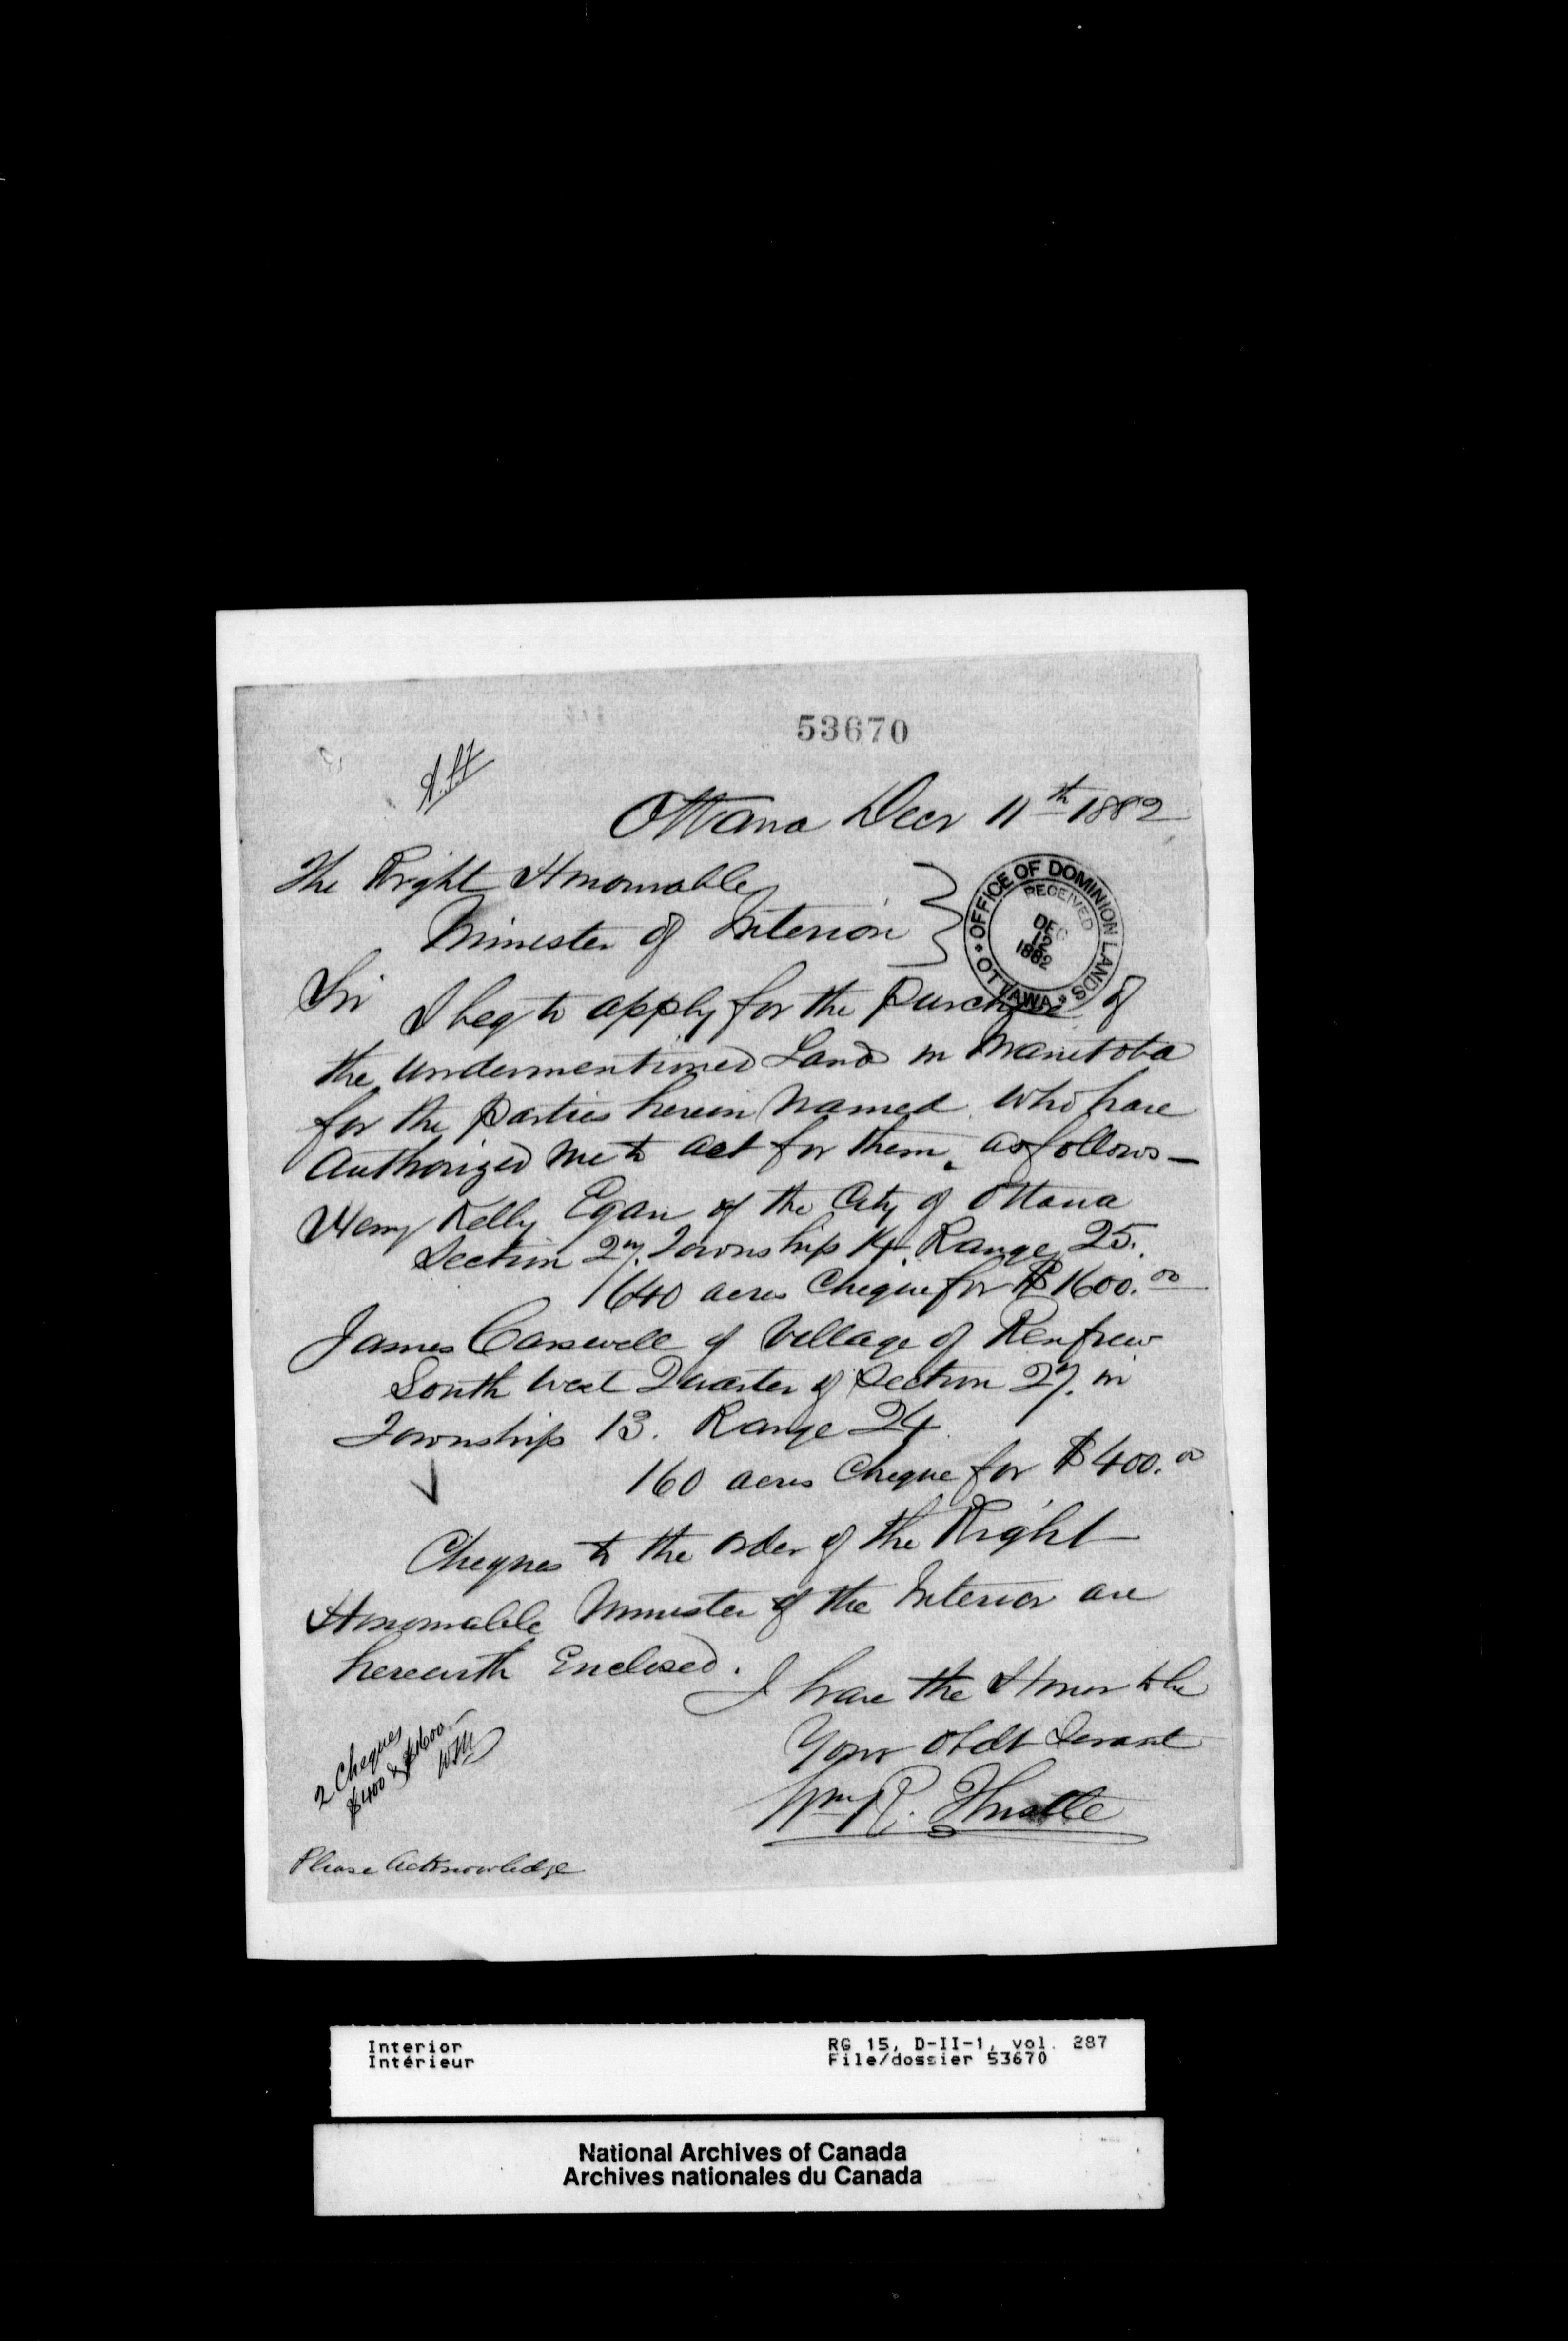 53670
Ottawa Decr 11th 1882
The Right Honourable
Minister of Interior
OFFICE OF DOMINION LANDS OTTAWA
RECEIVED
DEC
12
1882
Sir I beg to apply for the Purchase of
the undermentioned Land in Manitoba
for the Parties herein Named who have
Authorized me to act for them, as follows —
Henry Kelly Egan of the City of Ottawa
Section 27. Township 14. Range 25.
640 acres Cheque for $1600.00
James Carswell of Village of Renfrew
South West Quarter of Section 27. in
Township 13. Range 24.
160 acres Cheque for $400.00
Cheques to the order of the Right
Honourable Minister of the Interior are
herewith Enclosed.
I have the Honor to be
Your Obdt Servant
Wm R. Thistle
2 Cheques
$400 & $1600.-
WM
Please Acknowledge
Interior
Intérieur
RG 15, D-II-1, vol. 287
File/dossier 53670
National Archives of Canada
Archives nationales du Canada